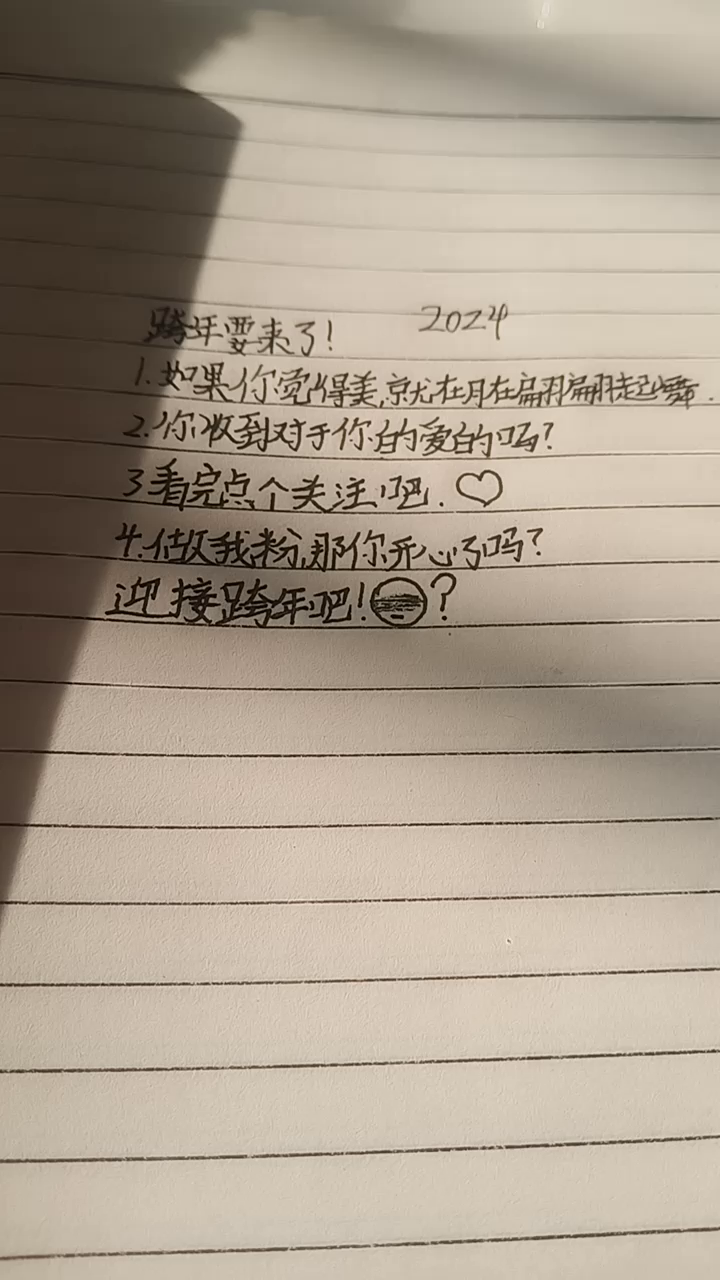 跨年要来了! 2024
1.如果你觉得美,就在月在翩翩起舞.
2.你收到对于你的爱的吗?
3看完点个关注吧.♡
4.做我粉,那你开心了吗?
迎接跨年吧!?